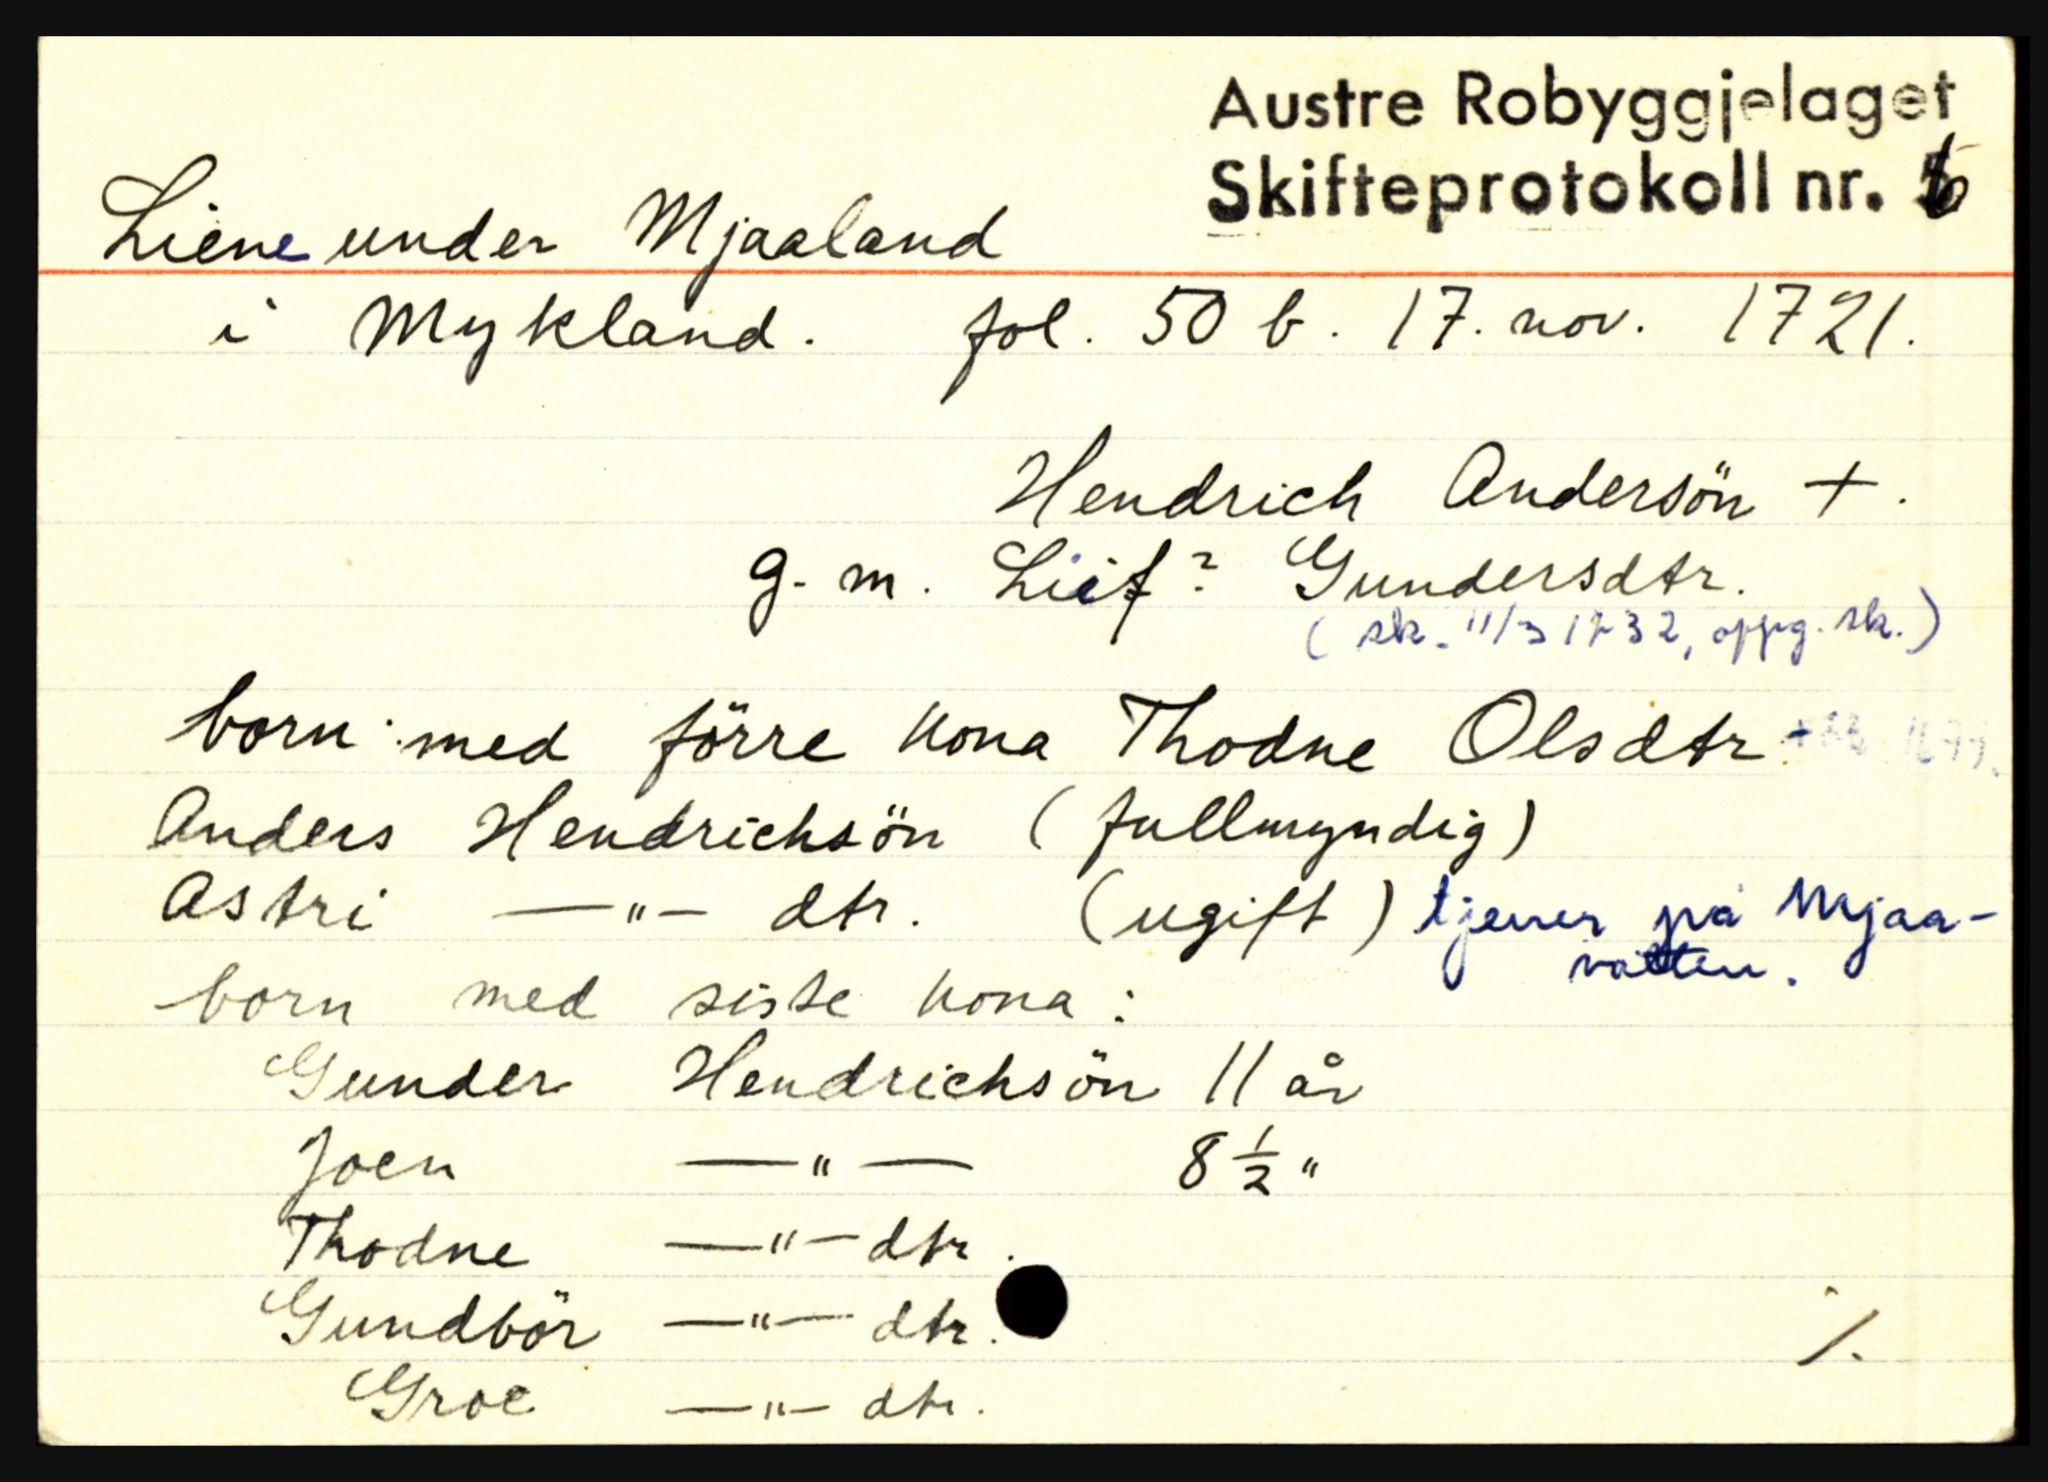 Austre Robyggjelaget
Skifteprotokoll nr.
Liene under Mjaaland
i Mykland. fol. 50 b. 17. nov. 1721.
Hendrich Andersön +.
g. m. Liif? Gundersdtr.
(sk. 11/3 1732, oppg. sk.)
born med förre kona Thodne Olsdtr.
Anders Hendrichsön (fullmyndig)
Astri —"— dtr. (ugift) tjener på Mjaa-
vatten.
born med siste kona:
Gunder Hendrichsön 11 år
Joen —"— 8 1/2 "
Thodne —"— dtr.
Gundbör —"— dtr.
Groe —"— dtr.